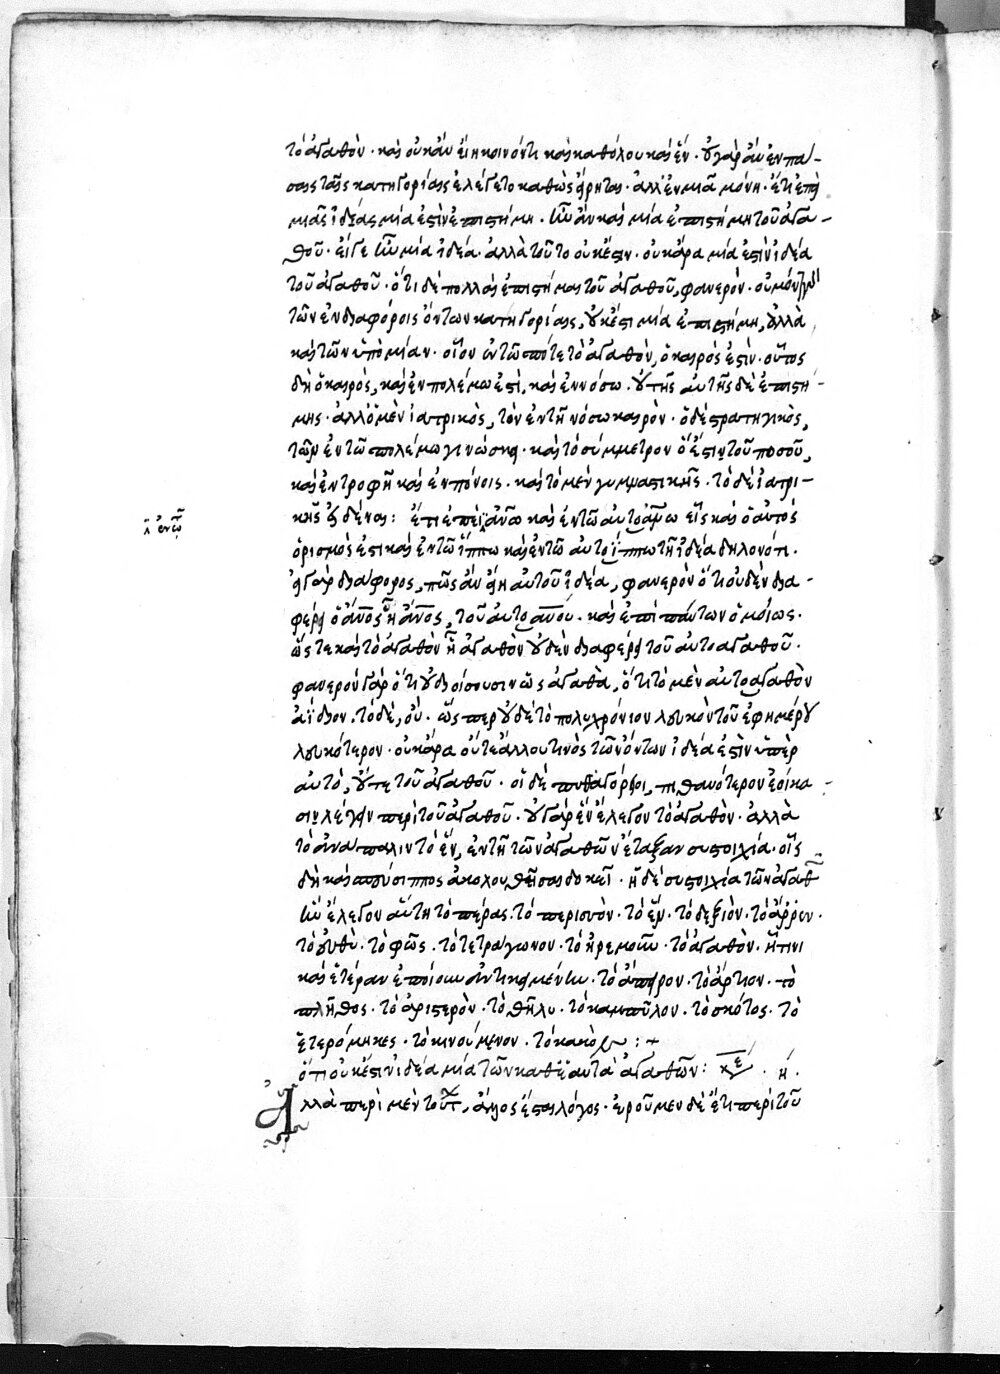 τὸ ἀγαθὸν · καὶ οὐκ ἂν εἴη κοινόν τι καὶ καθόλου καὶ ἕν · οὐ γὰρ ἂν ἐν πά-
σαις ταῖς κατηγορίαις ἐλέγετο καθὼς εἴρηται · ἀλλ' ἐν μιᾷ μόνῃ · ἔτι ἐπεὶ
μιᾶς ἰδέας μία ἐστὶν ἐπιστήμη · ἦν ἂν καὶ μία ἐπιστήμη τοῦ ἀγα-
θοῦ · εἴγε ἦν μία ἰδέα · ἀλλὰ τοῦτο οὐκ ἔστιν · οὐκ ἄρα μία ἐστὶν ἰδέα
τοῦ ἀγαθοῦ · ὅτι δὲ πολλαὶ ἐπιστῆμαι τοῦ ἀγαθοῦ, φανερόν · οὐ μόνον γὰρ
τῶν ἐν διαφόροις ὄντων κατηγορίαις, οὐκ ἔστι μία ἐπιστήμη, ἀλλὰ
καὶ τῶν ὑπὸ μίαν · οἷον ἐν τῶ ποτὲ τὸ ἀγαθὸν, ὁ καιρός ἐστιν · οὗτος
δὴ ὁ καιρὸς, καὶ ἐν πολέμω ἐστὶ, καὶ ἐν νόσω · οὐ τῆς αὐτῆς δὲ ἐπιστή-
μης · ἀλλ' ὁ μὲν ἰατρικὸς, τὸν ἐν τῇ νόσω καιρόν · ὁ δὲ στρατηγικὸς,
τὸν ἐν τῶ πολέμω γινώσκει · καὶ τὸ σύμμετρον ὅ ἐστι τοῦ ποσοῦ,
καὶ ἐν τροφῇ καὶ ἐν πόνοις · καὶ τὸ μὲν γυμναστικῆς · τὸ δὲ ἰατρι-
κῆς εἰδέναι : ἔτι ἐπεὶ ἐν ἀνω καὶ ἐν τῶ αὐτοανω εἷς καὶ ὁ αὐτὸς
ὁρισμός ἐστι καὶ ἐν τῶ ἵππω καὶ ἐν τῶ αὐτοΐππω τῇ ἰδέα δηλονότι ·
εἰ γὰρ διάφορος, πῶς ἂν εἴη αὐτοῦ ἰδέα, φανερὸν ὅτι οὐδὲν δια-
φέρει ὁ ἄνος ᾗ ἄνος, τοῦ αὐτοανου · καὶ ἐπὶ πάντων ὁμοίως ·
ὥστε καὶ τὸ ἀγαθὸν ᾗ ἀγαθὸν οὐδὲν διαφέρει τοῦ αὐτοαγαθοῦ ·
φανερὸν γὰρ ὅτι οὐ διοίσουσιν ὡς ἀγαθὰ, ὅτι τὸ μὲν αὐτοαγαθὸν
ἀΐδιον · τὸ δὲ, οὔ · ὥσπερ οὐδὲ τὸ πολυχρόνιον λευκὸν τοῦ ἐφημέρου
λευκότερον · οὐκ ἄρα οὔτε ἄλλου τινὸς τῶν ὄντων ἰδέα ἐστὶν ὑπὲρ
αὐτὸ, οὔτε τοῦ ἀγαθοῦ · οἱ δὲ πυθαγόρειοι, πιθανώτερον ἐοίκα-
σι λέγειν περὶ τοῦ ἀγαθοῦ · οὐ γὰρ ἓν ἔλεγον τὸ ἀγαθὸν · ἀλλὰ
τὸ ἀνάπαλιν τὸ ἓν, ἐν τῇ τῶν ἀγαθῶν ἔταξαν συστοιχία · οἷς
δὴ καὶ σπεύσιππος ἀκολουθῆσαι δοκεῖ · ἡ δὲ συστοιχία τῶν ἀγαθῶν
ἣν ἔλεγον αὕτη τὸ πέρας · τὸ περισσὸν · τὸ ἓν · τὸ δεξιὸν · τὸ ἄρρεν ·
τὸ εὐθὺ · τὸ φῶς · τὸ τετράγωνον · τὸ ἠρεμοῦν · τὸ ἀγαθὸν · ᾗτινι
καὶ ἑτέραν ἐποίουν ἀντικειμένην · τὸ ἄπειρον · τὸ ἄρτιον · τὸ
πλῆθος · τὸ ἀριστερὸν · τὸ θῆλυ · τὸ καμπύλον · τὸ σκότος · τὸ
ἑτερόμηκες · τὸ κινούμενον · τὸ κακόν : +
ὅτι οὐκ ἔστιν ἰδέα μία τῶν καθ' ἑαυτὰ ἀγαθῶν : · η ·
Ἀλλὰ περὶ μὲν τούτ, ἄλλος ἔσται λόγος · ἐροῦμεν δὲ ἔτι περὶ τοῦ